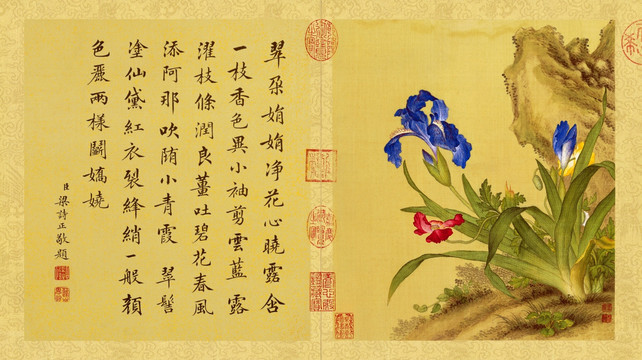 翠朶娟娟净花心曉露含
一枝香色異小袖剪雲藍露
濯枝條潤良薑吐碧花春風
添阿那吹隋小青霞 翠髻
塗仙黛紅衣裂絳綃一般顏
色麗兩樣鬬嬌嬈
臣梁詩正敬題